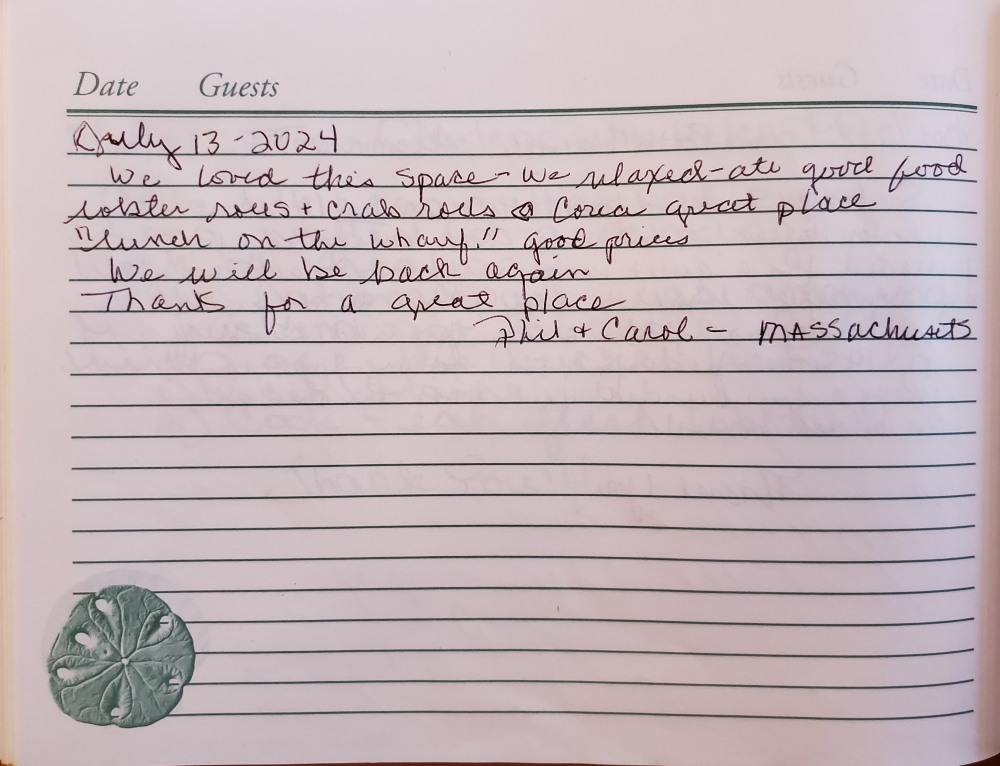 Date Guests
July 13-2024
We loved this space - we relaxed - ate good food
lobster rolls + crab rolls @ Corea great place
"Lunch on the wharf." good prices
We will be back again
Thanks for a great place
Phil & Carol - MASSachusetts